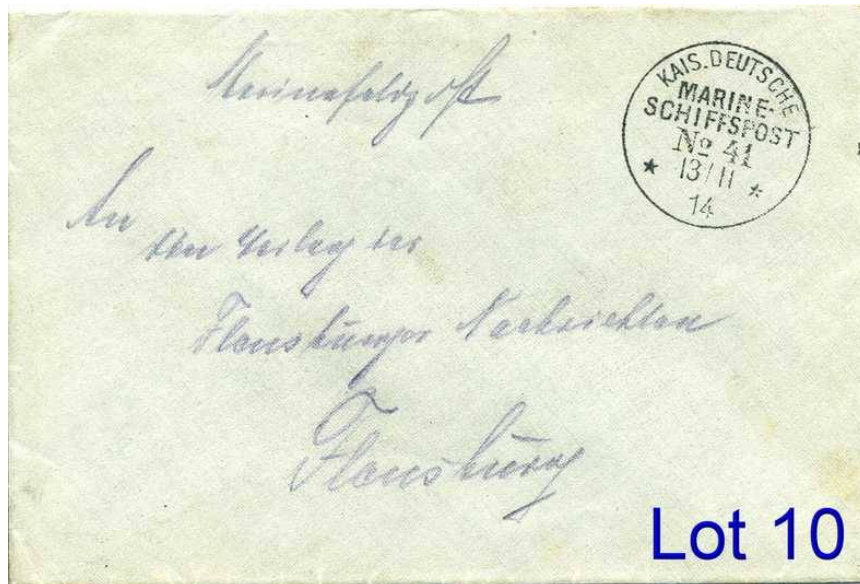 Marinefeldpost
KAIS. DEUTSCHE
MARINE-
SCHIFFSPOST
No 41
13/11
14
An
den Verlag der
Flensburger Nachrichten
Flensburg
Lot 10